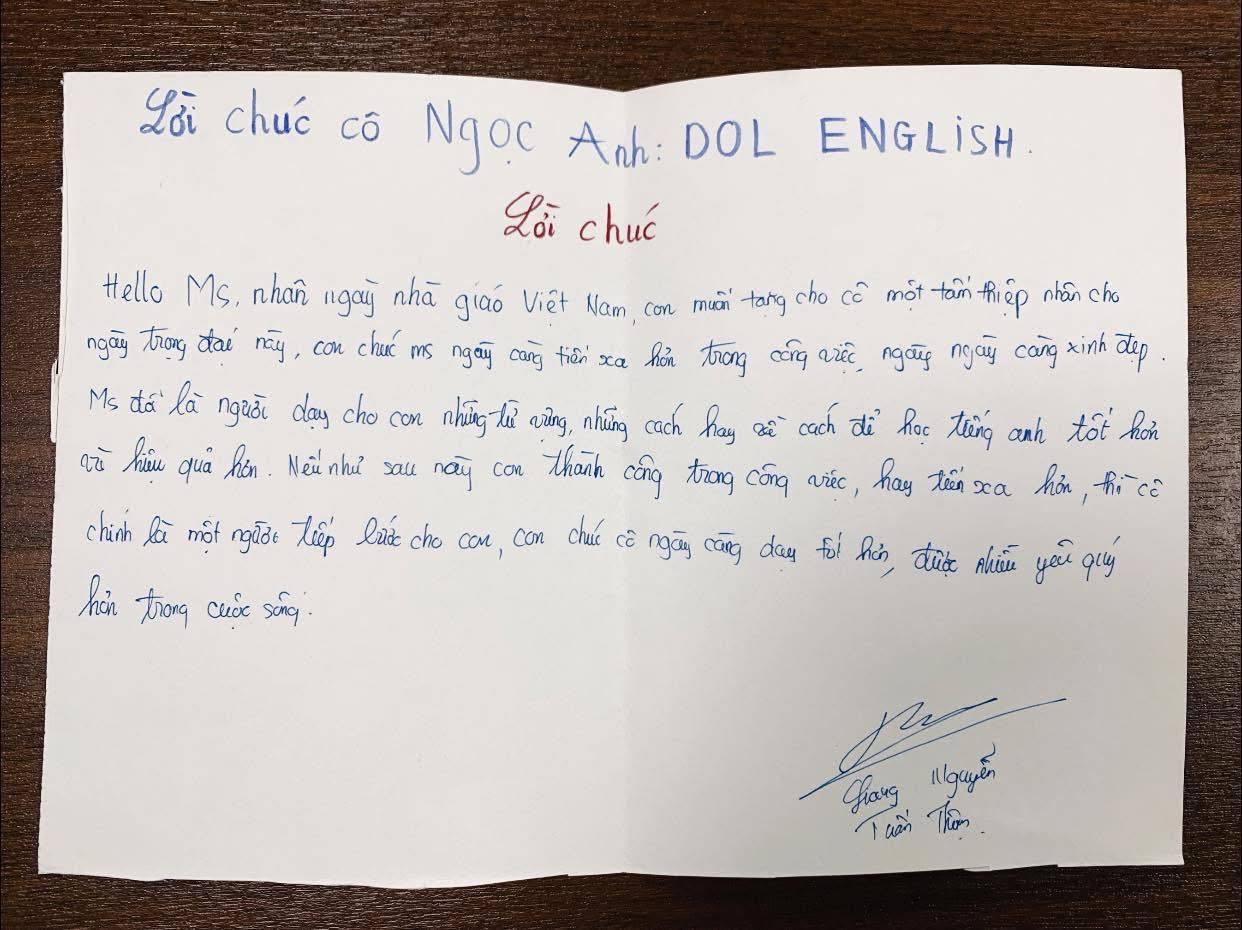 Lời chúc cô Ngọc Anh: DOL ENGLISH.
Lời chúc
Hello Ms, nhân ngày nhà giáo Việt Nam, con muốn tặng cho cô một tấm thiệp nhân cho
ngày trọng đaí này, con chúc ms ngày càng tiến xa hơn trong công việc, ngày ngày càng xinh đẹp.
Ms đã là người dạy cho con những từ vựng, những cách hay về cách để học tiếng anh tốt hơn
và hiệu quả hơn. Nếu như sau này con thành công trong công việc, hay tiến xa hơn, thì cô
chính là một người tiếp lức cho con, con chúc cô ngày càng dạy tốt hơn, được nhiều yêu quý
hơn trong cuộc sống.
Giang Nguyễn
Tuấn